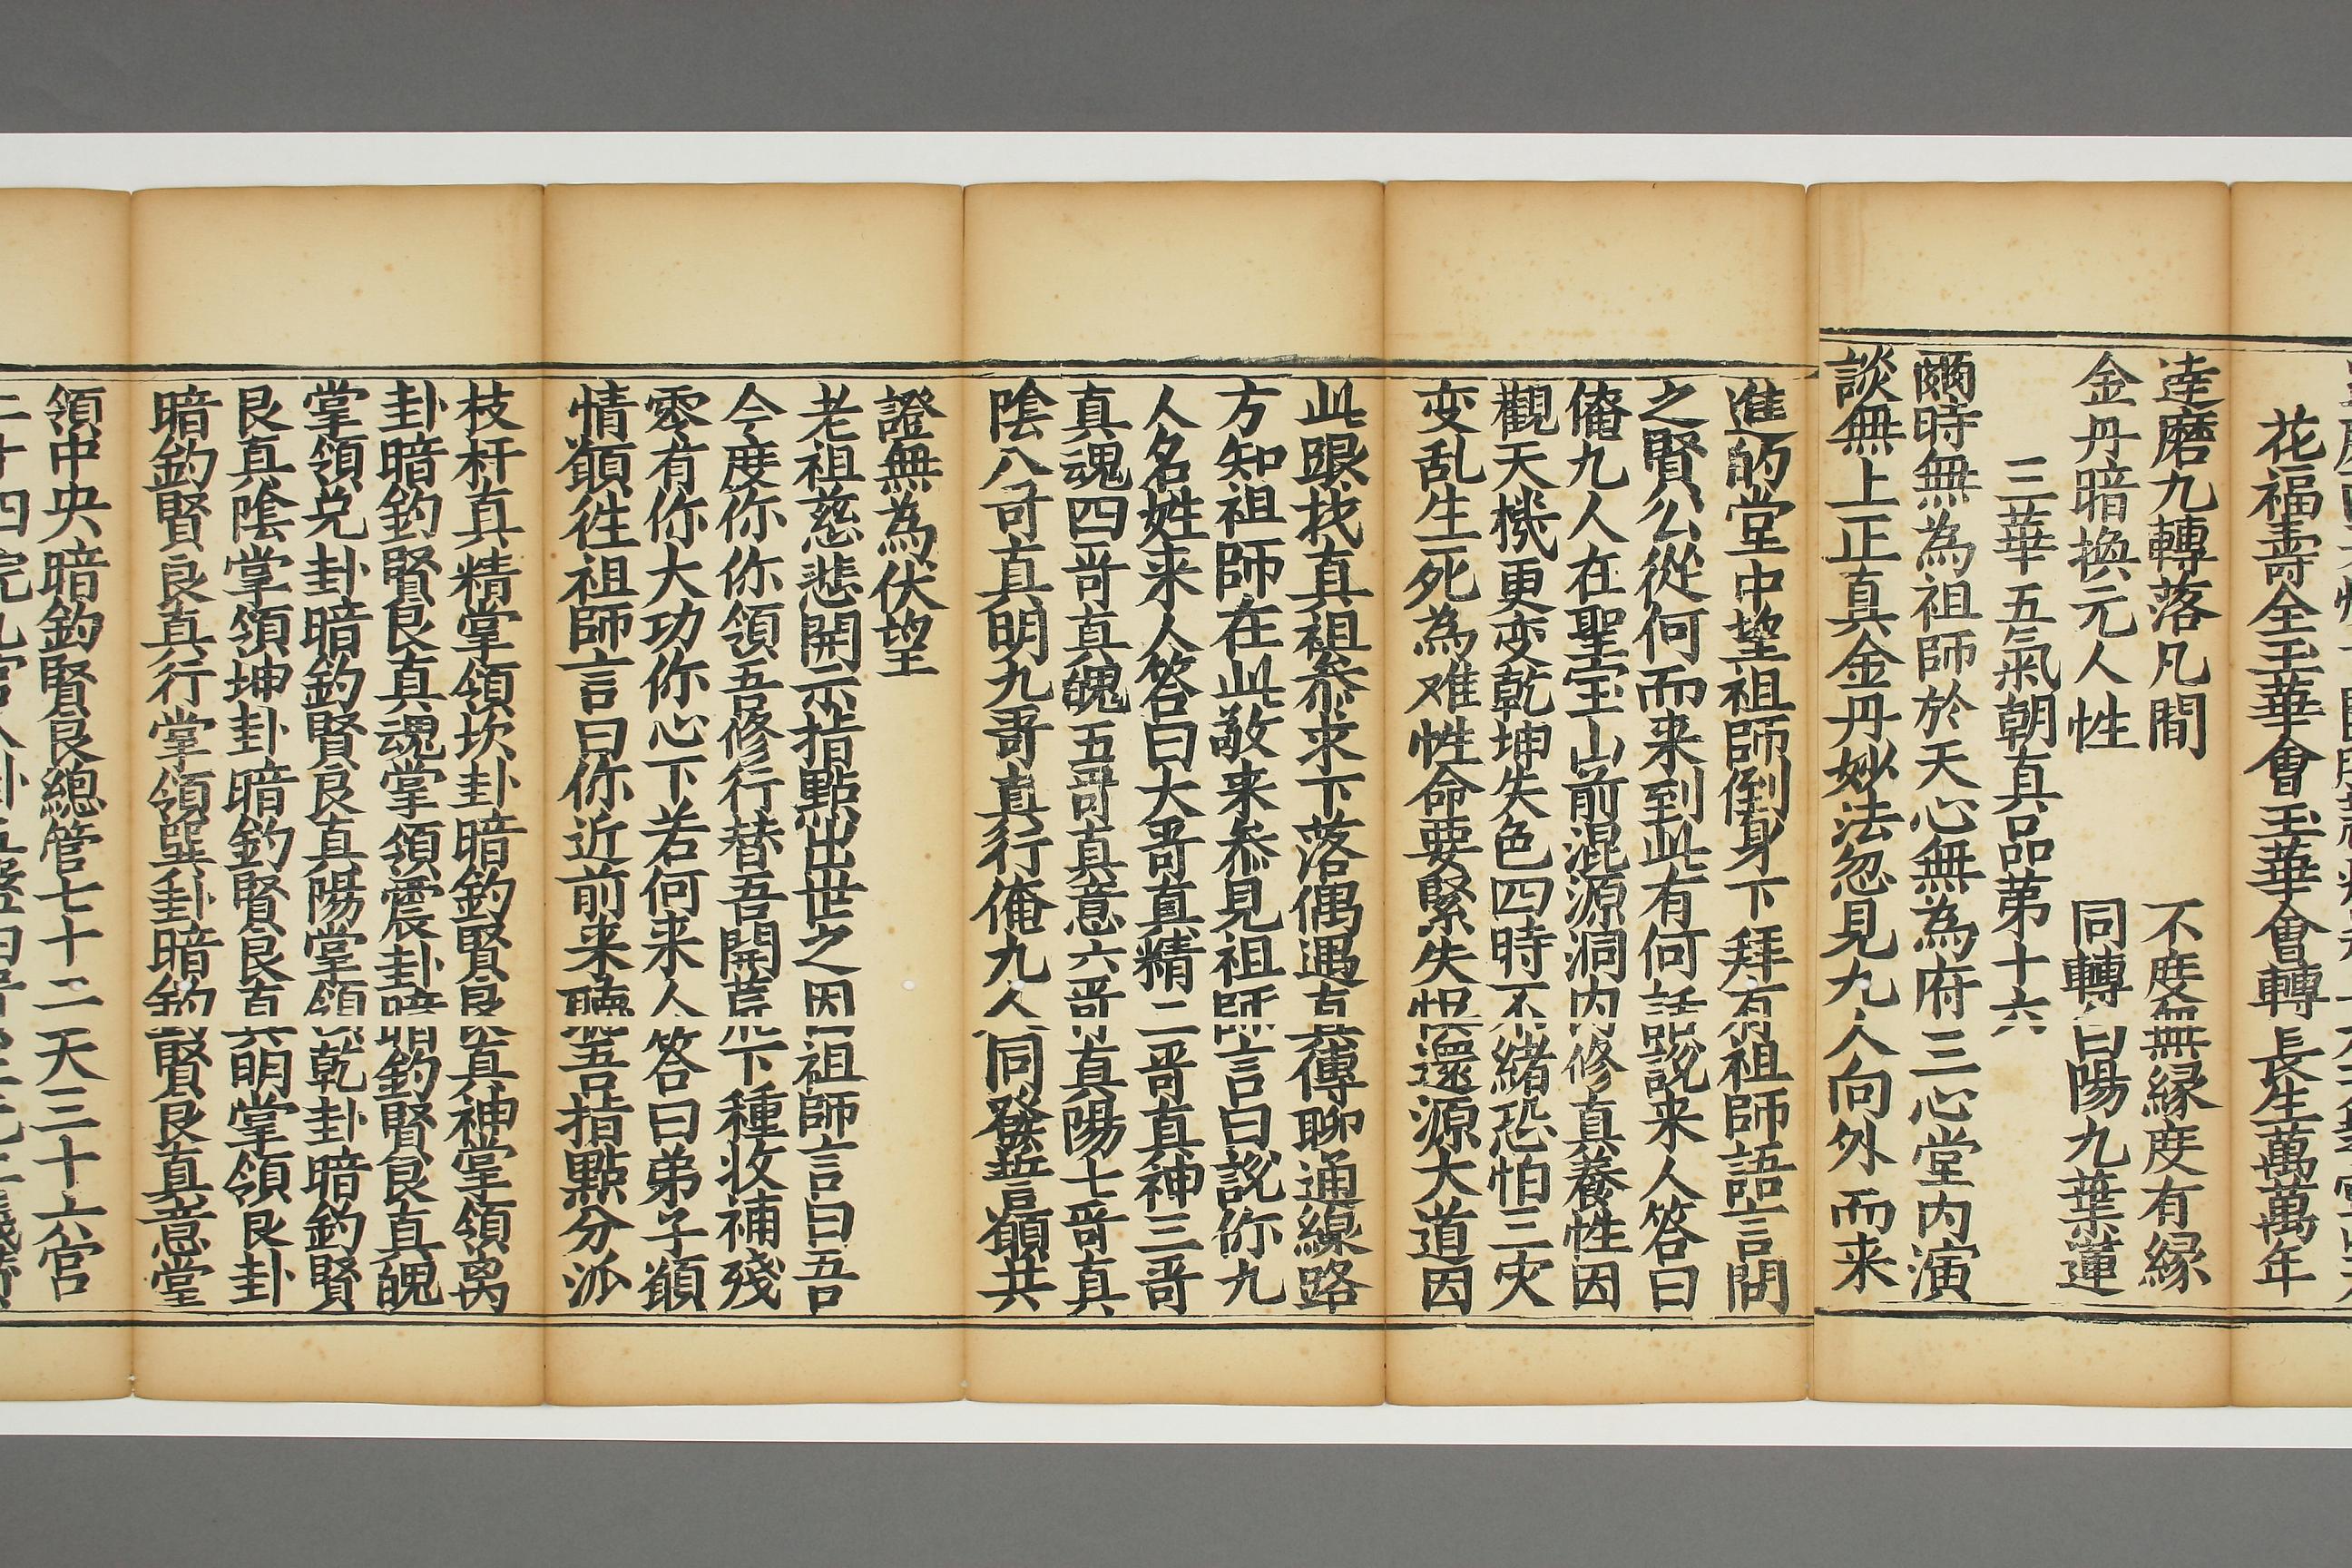 花福壽全玉華會玉華會轉長生萬萬年
達磨九轉落凡間 不度無緣度有緣
金丹暗換元人性 同轉白陽九葉蓮
三華五氣朝真品第十六
爾時無為祖師於天心無為府三心堂内演
談無上正真金丹妙法忽見九人向外而来
進的堂中望祖師倒身下拜有祖師語言問
之賢公從何而来到此有何話說来人答曰
俺九人在聖宝山前混源洞内修真養性因
觀天機更变乾坤失色四時不緒恐怕三灾
变乱生死為难性命要緊失悞還源大道因
此跟找真祖叅求下落偶遇真傳聊通線路
方知祖師在此敬来叅見祖師言曰說你九
人名姓来人答曰大哥真精二哥真神三哥
真魂四哥真魄五哥真意六哥真陽七哥真
陰八哥真明九哥真行俺九人同發誓言願共
證無為伏望
老祖慈悲開示指點出世之因祖師言曰吾
今度你你領吾修行替吾開荒下種收補殘
零有你大功你心下若何来人答曰弟子願
情願徃祖師言曰你近前来聽吾指點分派
枝杆真精掌領坎卦暗釣賢良真神掌領离
卦暗釣賢良真魂掌領震卦暗釣賢良真魄
掌領兑卦暗釣賢良真陽掌領乾卦暗釣賢
良真陰掌領坤卦暗釣賢良真明掌領艮卦
暗釣賢良真行掌領巽卦暗釣賢良真意掌
領中央暗釣賢良總管七十二天三十六宫